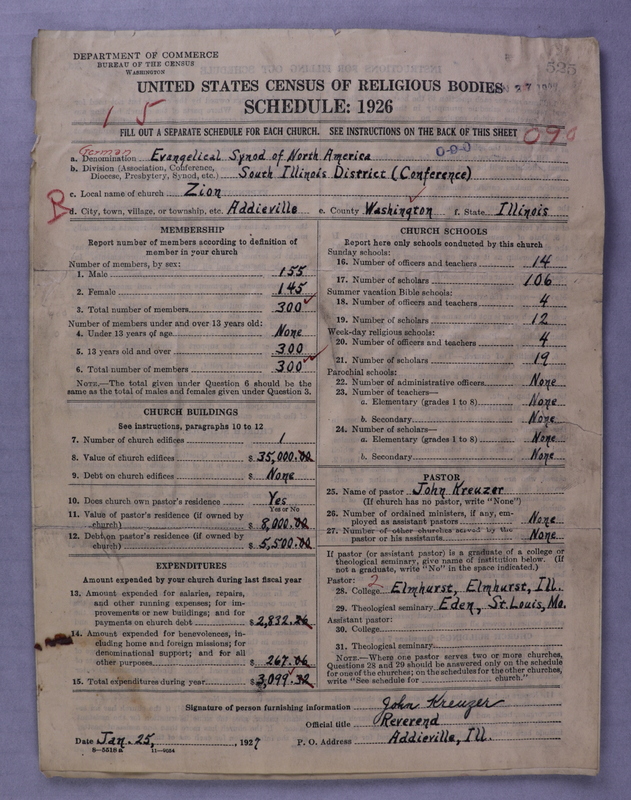 DEPARTMENT OF COMMERCE
BUREAU OF THE CENSUS
WASHINGTON
525
UNITED STATES CENSUS OF RELIGIOUS BODIES
SCHEDULE: 1926
1 5
FILL OUT A SEPARATE SCHEDULE FOR EACH CHURCH. SEE INSTRUCTIONS ON THE BACK OF THIS SHEET
090
German
a. Denomination Evangelical Synod of North America 0-9-0
b. Division (Association, Conference,
Diocese, Presbytery, Synod, etc.) South Illinois District (Conference)
c. Local name of church Zion
B
d. City, town, village, or township, etc. Addieville e. County Washington f. State Illinois
MEMBERSHIP
Report number of members according to definition of
member in your church
Number of members, by sex:
1. Male 155
2. Female 145
3. Total number of members 300
Number of members under and over 13 years old:
4. Under 13 years of age None
5. 13 years old and over 300
6. Total number of members 300
NOTE.—The total given under Question 6 should be the
same as the total of males and females given under Question 3.
CHURCH BUILDINGS
See instructions, paragraphs 10 to 12
7. Number of church edifices 1
8. Value of church edifices $ 35,000.00
9. Debt on church edifices $ None
10. Does church own pastor's residence Yes
Yes or No
11. Value of pastor's residence (if owned by
church) $ 8,000.00
12. Debt on pastor's residence (if owned by
church) $ 5,500.00
EXPENDITURES
Amount expended by your church during last fiscal year
13. Amount expended for salaries, repairs,
and other running expenses; for im-
provements or new buildings; and for
payments on church debt $ 2,832.26
14. Amount expended for benevolences, in-
cluding home and foreign missions; for
denominational support; and for all
other purposes $ 267.06
15. Total expenditures during year $ 3,099.32
CHURCH SCHOOLS
Report here only schools conducted by this church
Sunday schools:
16. Number of officers and teachers 14
17. Number of scholars 106
Summer vacation Bible schools:
18. Number of officers and teachers 4
19. Number of scholars 12
Week-day religious schools:
20. Number of officers and teachers 4
21. Number of scholars 19
Parochial schools:
22. Number of administrative officers None
23. Number of teachers—
a. Elementary (grades 1 to 8) None
b. Secondary None
24. Number of scholars—
a. Elementary (grades 1 to 8) None
b. Secondary None
PASTOR
25. Name of pastor John Kreuzer
(If church has no pastor, write "None")
26. Number of ordained ministers, if any, em-
ployed as assistant pastors None
27. Number of other churches served by the
pastor or his assistants None
If pastor (or assistant pastor) is a graduate of a college or
theological seminary, give name of institution below. (If
not a graduate, write "No" in the space indicated.)
Pastor: 2
28. College Elmhurst, Elmhurst, Ill.
29. Theological seminary Eden, St. Louis, Mo.
Assistant pastor:
30. College
31. Theological seminary
NOTE.—Where one pastor serves two or more churches,
Questions 28 and 29 should be answered only on the schedule
for one of the churches; on the schedules for the other churches,
write "See schedule for church."
Signature of person furnishing information John Kreuzer
Official title Reverend
Date Jan. 25, , 1927 P. O. Address Addieville, Ill.
8—5518 a 11—9084